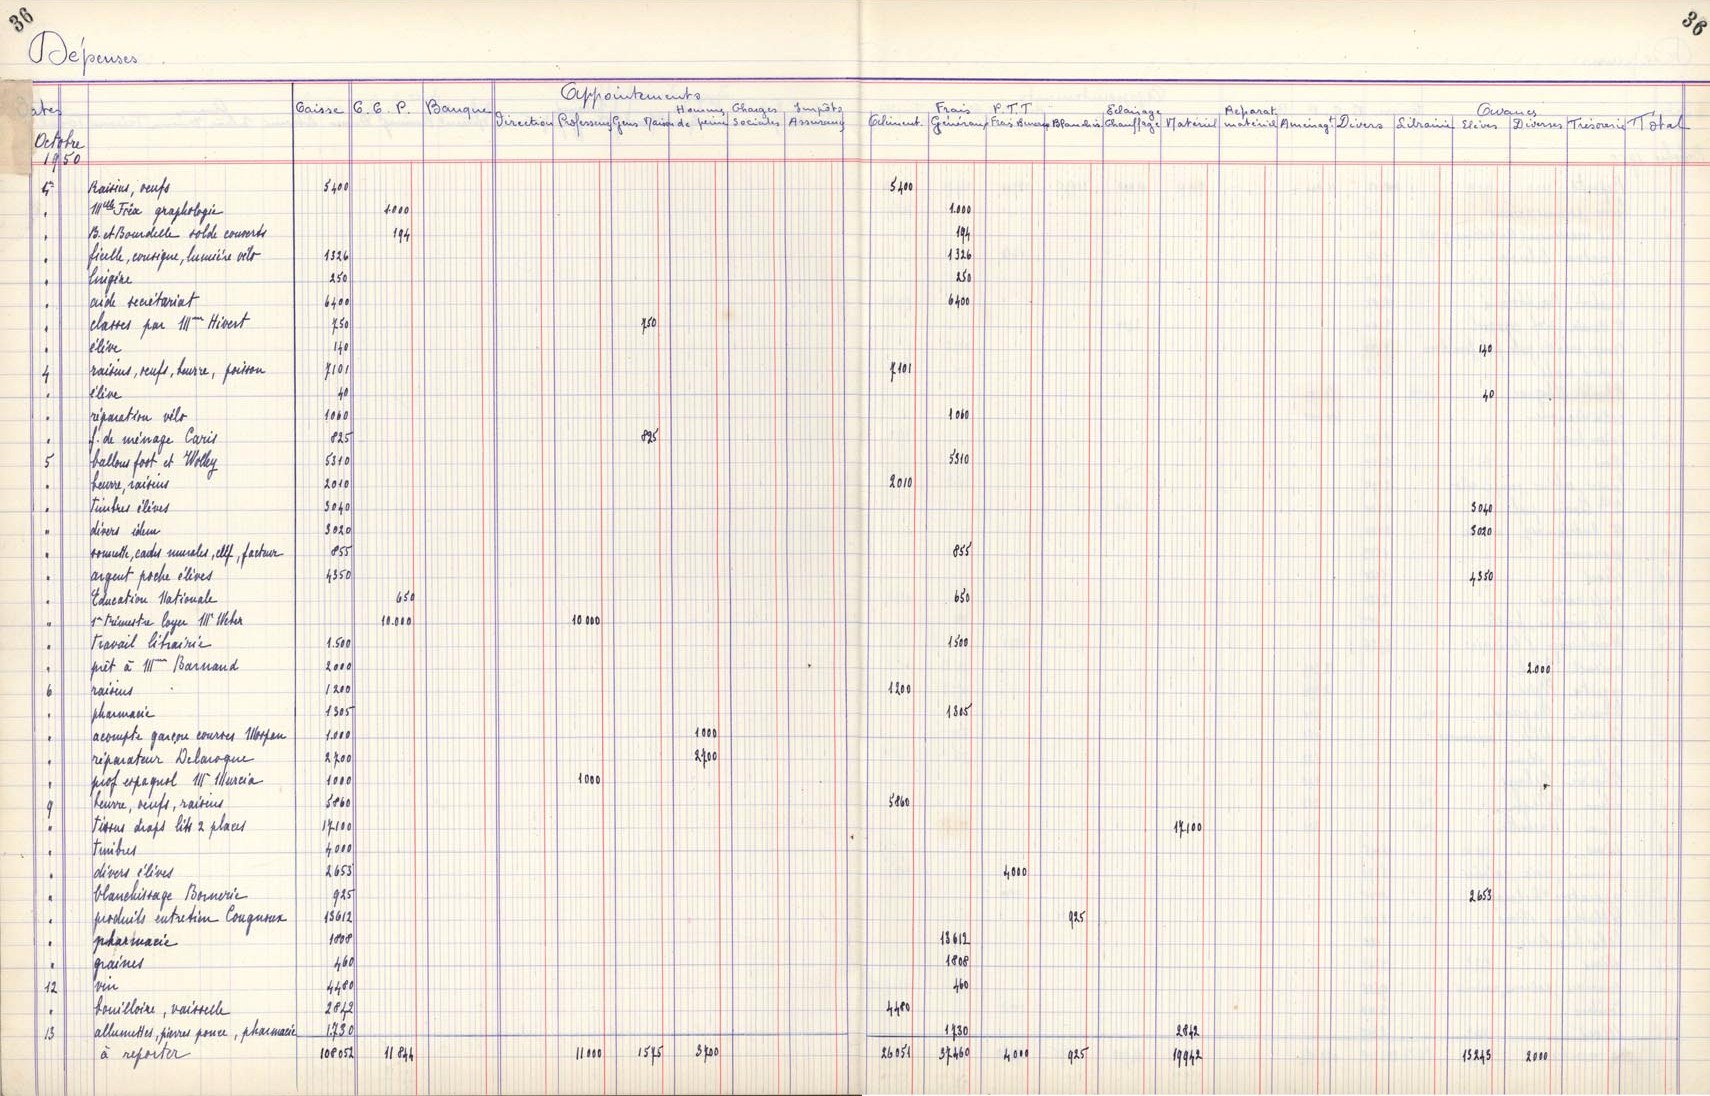 36 36
Dépenses
Appointements
Caisse C.C.P. Banque Direction Professeurs Gens Maison Homme de peine Charges Sociales Impôts Assurances Aliment. Frais Généraux P.T.T Frais Bureau Blanchis. Eclairage Chauffage Matériel Réparat. matériel Aménagt Divers Librairie Avances Elèves Diverses Trésorerie Total
Octobre
1950
Raisins, oeufs 5400 5400
" Melle graphologie 1.000 1.000
" B. et Bourdelle solde couverts 194 194
" ficelle, consigne, lumière vélo 1326 1326
" lingère 250 250
" aide secrétariat 6400 6400
" classes par Mme Hivert 750 750
" élève 140 140
4 raisins, oeufs, beurre, poisson 7101 7101
" élève 40 40
" réparation vélo 1060 1060
" f. de ménage Caris 825 825
5 ballons foot et Wolley 5310 5310
" beurre, raisins 2010 2010
" timbres élèves 3040 3040
" divers idem 3020 3020
" murales, clef, facteur 855 855
" argent poche élèves 4350 4350
" Education Nationale 650 650
" 1er trimestre loyer Mr Weber 10.000 10.000
" travail librairie 1.500 1500
" prêt à Mme Barnaud 2000 2.000
6 raisins 1200 1200
" pharmacie 1305 1305
" acompte garçon courses 1.000 1000
" réparateur Delaroque 2700 2700
" prof espagnol Mr Murcia 1000 1000
9 beurre, oeufs, raisins 5860 5860
" tissus draps lits 2 places 17100 17100
" timbres 4.000
" divers élèves 2653 4000
" blanchissage Bonnerie 925 2653
" produits entretien Cougnoux 13612 925
" pharmacie 1808 13612
" graines 460 1808
12 vin 4480 460
" bouilloire, vaisselle 2842 4480
13 allumettes, pierres ponce, pharmacie 1.730 1730 2842
à reporter 108052 11844 11000 1575 3700 26051 37460 4.000 925 19942 13243 2000